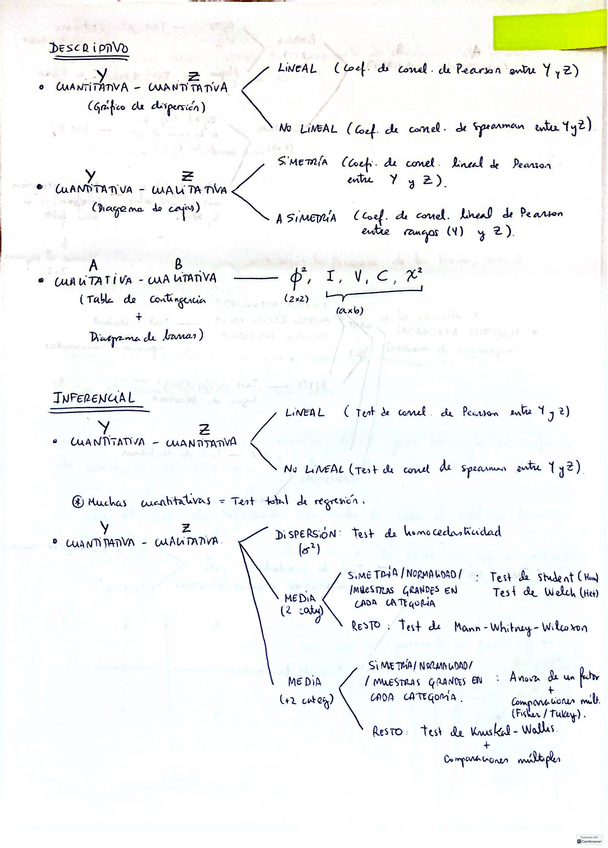 DESCRIPTIVO
Y Z
• CUANTITATIVA - CUANTITATIVA
(Gráfico de dispersión)
LINEAL (coef. de correl. de Pearson entre Y y Z)
NO LINEAL (coef. de correl. de Spearman entre Y y Z)
Y Z
• CUANTITATIVA - CUALITATIVA
(Diagrama de cajas)
SIMETRÍA (coef. de correl. lineal de Pearson
entre Y y Z).
ASIMETRÍA (coef. de correl. lineal de Pearson
entre rangos (Y) y Z).
A B
• CUALITATIVA - CUALITATIVA
(Tabla de contingencia
+
Diagrama de barras)
ϕ², I, V, C, χ²
(2x2)
(axb)
INFERENCIAL
Y Z
• CUANTITATIVA - CUANTITATIVA
LINEAL (Test de correl. de Pearson entre Y y Z)
NO LINEAL (Test de correl de Spearman entre Y y Z).
⊛ Muchas cuantitativas = Test total de regresión.
Y Z
• CUANTITATIVA - CUALITATIVA.
DISPERSIÓN: Test de homocedasticidad
(σ²)
MEDIA
(2 categ)
SIMETRÍA/NORMALIDAD/
/MUESTRAS GRANDES EN
CADA CATEGORÍA
: Test de Student (Hom)
Test de Welch (Het)
RESTO: Test de Mann-Whitney-Wilcoxon
MEDIA
(+2 categ)
SIMETRÍA/NORMALIDAD/
/MUESTRAS GRANDES EN
CADA CATEGORÍA.
: Anova de un factor
+
comparaciones múlt.
(Fisher/Tukey).
RESTO: Test de Kruskal-Wallis.
+
Comparaciones múltiples
CamScanner